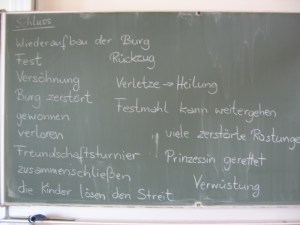 Schluss
Wiederaufbau der Burg
Fest
Rückzug
Versöhnung
Verletze → Heilung
Burg zerstört
Festmahl kann weitergehen
gewonnen
verloren
viele zerstörte Rüstungen
Freundschaftsturnier
Prinzessin gerettet
zusammenschließen
Verwüstung
die Kinder lösen den Streit